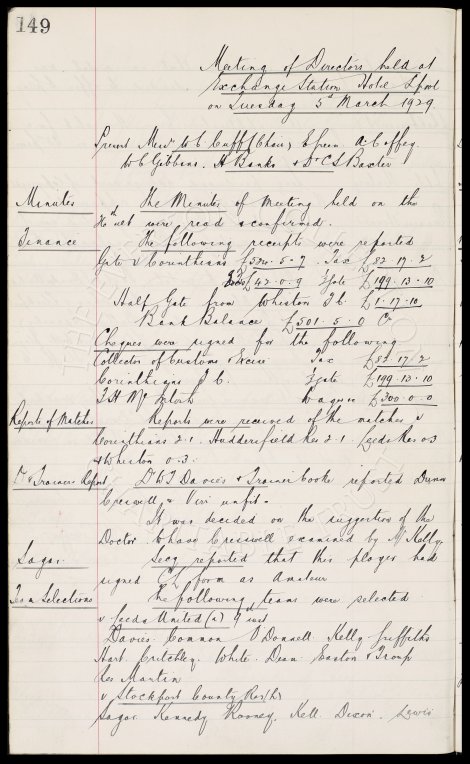 149
Meeting of Directors held at
Exchange Station Hotel L'pool
on Tuesday 5th March 1929.
Present Messrs W C Cuff (Chair) E Green A. Coffey
W C Gibbins. H Banks & Dr C S Baxter
Minutes
The Minutes of Meeting held on the
ult were read & confirmed.
Finance
The following receipts were reported
Gate v Corinthians £534. 5. 7. Tax £83. 17. 2
£42. 0. 9 ½ Gate £199. 13. 10
Half Gate from Whiston F C. £1. 17. 10
Bank Balance £501. 5. 0 Cr
Cheques were signed for the following
Collector of Customs & Excise Tax £83. 17. 2
Corinthians F. C. ½ Gate £199. 13. 10
T. H. McIntosh Wages £300. 0. 0
Reports of Matches
Reports were received of the matches v
Corinthians 2-1. Huddersfield Res 2-1. Leeds Res 0-3
& Whiston 0. 3.
Dr & Trainers Report
Dr W T Davies & Trainer Cooke reported Dunn
Creswell & Virr unfit.
It was decided on the suggestion of the
Doctor to have Creswell examined by Mr Kelly.
Sagar.
Secy reported that this player had
signed form as Amateur
Team Selections
The following teams were selected
v Leeds United (a) 9th inst
Davies. Common O'Donnell. Kelly Griffiths
Hart. Critchley. White. Dean Easton & Troup
Res Martin
v Stockport County Res (h)
Sagar. Kennedy Rooney. Kell. Dixon. Lewis